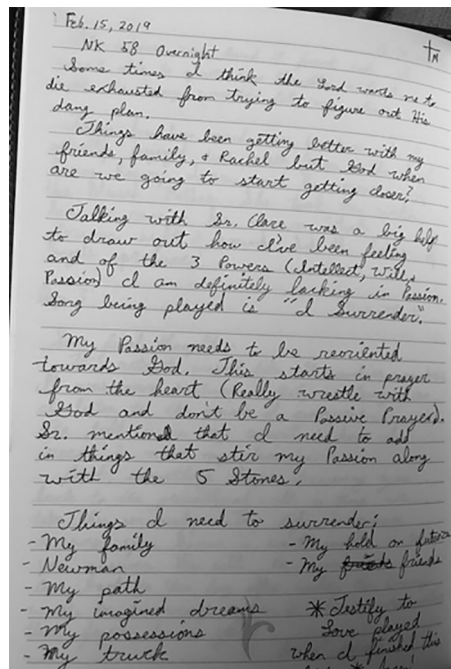 Feb. 15, 2019
NK 58 Overnight
Some times I think the Lord wants me to
die exhausted from trying to figure out His
dang plan.
Things have been getting better with my
friends, family, & Rachel but God when
are we going to start getting closer?
Talking with Sr. Clare was a big help
to draw out how I've been feeling
and of the 3 Powers (Intellect, Will,
Passion) I am definitely lacking in Passion.
Song being played is "I Surrender".
My Passion needs to be reoriented
towards God. This starts in prayer
from the heart (Really wrestle with
God and don't be a Passive Prayer).
Sr. mentioned that I need to add
in things that stir my Passion along
with the 5 Stones.
Things I need to surrender:
- My family
- Newman
- My path
- My imagined dreams
- My possessions
- My truck
- My hold on future
- My friends friends
* Testify to
Love played
when I finished this